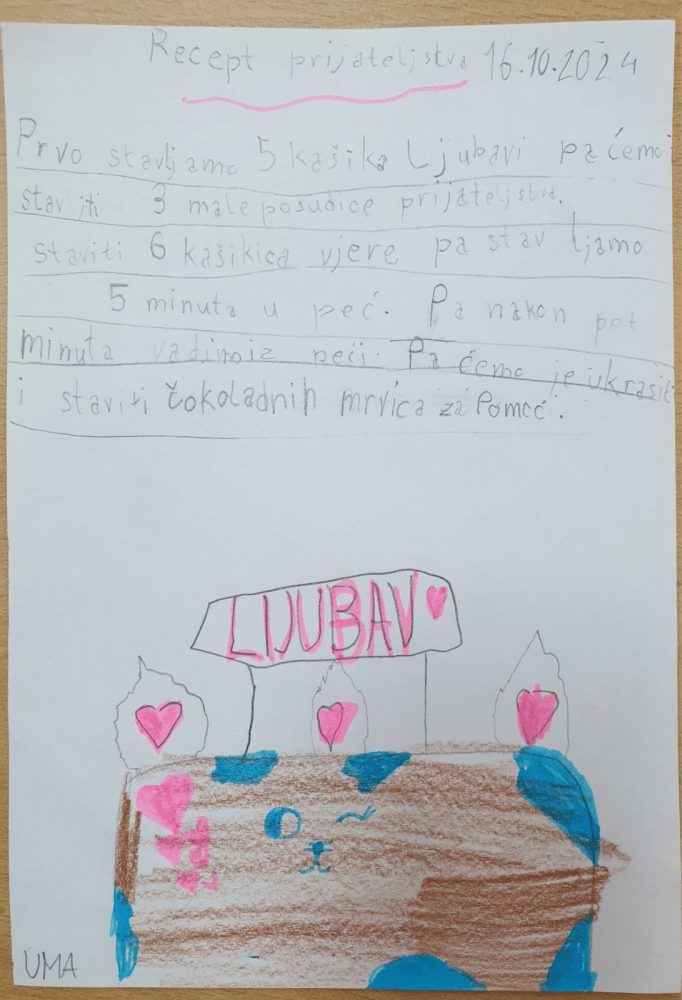 Recept prijateljstva 16.10.2024
Prvo stavljamo 5 kašika Ljubavi pa ćemo
stavljti 3 male posudice prijateljstva.
staviti 6 kašikica vjere pa stav ljamo
5 minuta u peć. Pa nakon pet
minuta vadimo iz peći. Pa ćemo je ukrasiti
i staviti čokoladnih mrvica za Pomoć.
LJUBAV
UMA